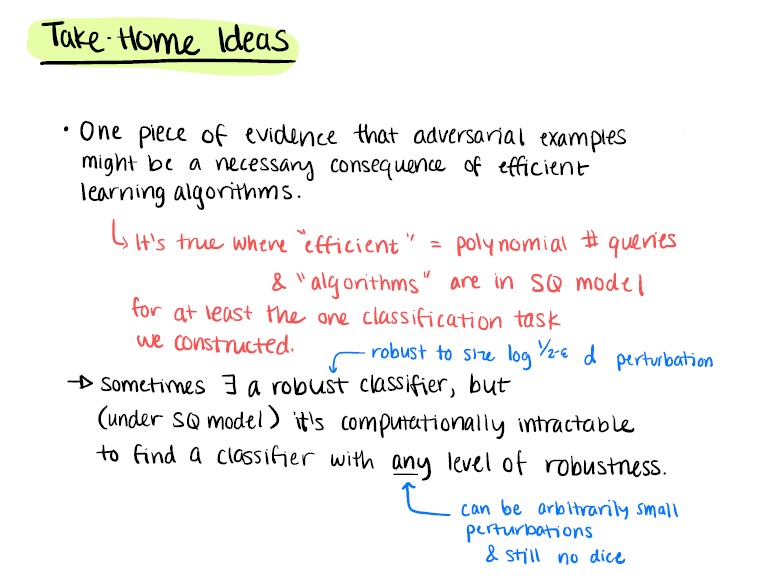 Take-Home Ideas
• One piece of evidence that adversarial examples
might be a necessary consequence of efficient
learning algorithms.
↳ It's true where "efficient" = polynomial # queries
& "algorithms" are in SQ model
for at least the one classification task
we constructed.
robust to size log^1/2-ε d perturbation
→ sometimes ∃ a robust classifier, but
(under SQ model) it's computationally intractable
to find a classifier with any level of robustness.
can be arbitrarily small
perturbations
& still no dice